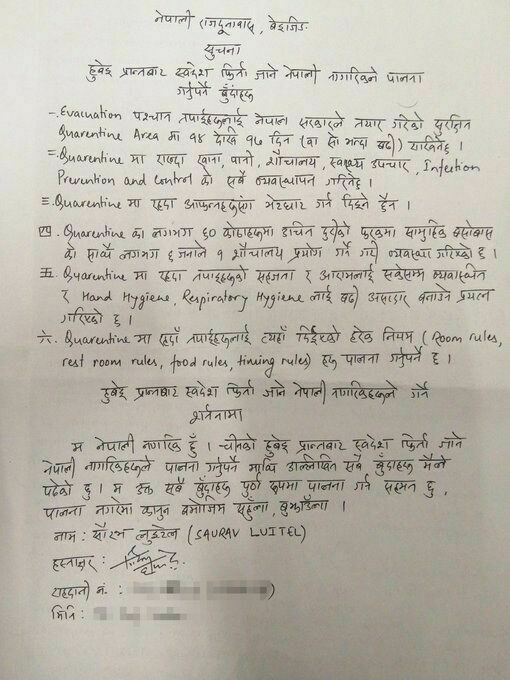 नेपाली राजदूतावास, बेइजिङ
सुचना
हुबेइ प्रान्तबाट स्वदेश फिर्ता जाने नेपाली नागरिकले पालना
गर्नुपर्ने बुँदाहरु
一. Evacuation पश्चात तपाईहरुलाई नेपाल सरकारले तयार गरेको सुरक्षित
Quarentine Area मा १४ देखि १७ दिन (वा सो भन्दा बढी) राखिनेछ ।
二. Quarentine मा राख्दा खाना, पानी, शौचालय, स्वास्थ्य उपचार, Infection
Prevention and Control को सबै व्यवस्थापन गरिनेछ ।
三. Quarentine मा रहदा आफन्तहरुसंग भेटघाट गर्न दिइने छैन ।
四. Quarentine का लगभग ६० कोठाहरुमा उचित दुरीको फरकमा सामुहिक बसोबास
का साथै लगभग ६ जनाले १ शौचालय प्रयोग गर्ने गरी व्यवस्था गरिएको छ ।
五. Quarentine मा रहदा तपाईहरुको सहजता र आरामलाई सकेसम्म व्यवस्थित
र Hand Hygiene, Respiratory Hygiene लाई बढी असरदार बनाउने प्रयत्न
गरिएको छ ।
六. Quarentine मा रहदाँ तपाईहरुलाई त्यहाँ दिईएको हरेक नियम (Room rules,
rest room rules, food rules, timing rules) हरु पालना गर्नुपर्ने छ ।
हुबेइ प्रान्तबाट स्वदेश फिर्ता जाने नेपाली नागरिकहरुले गर्ने
शर्तनामा
म नेपाली नागरिक हुँ । चीनको हुबेइ प्रान्तबाट स्वदेश फिर्ता जाने
नेपाली नागरिकहरुले पालना गर्नुपर्ने माथि उल्लिखित सबै बुँदाहरु मैले
पढेको छु । म उक्त सबै बुँदाहरु पुर्ण रुपमा पालना गर्न सहमत छु,
पालना नगरेमा कानुन बमोजिम सहुँला, बुझाउँला ।
नाम : सौरभ लुइटेल (SAURAV LUITEL)
हस्ताक्षर :
राहदानी नं. :
मिति :